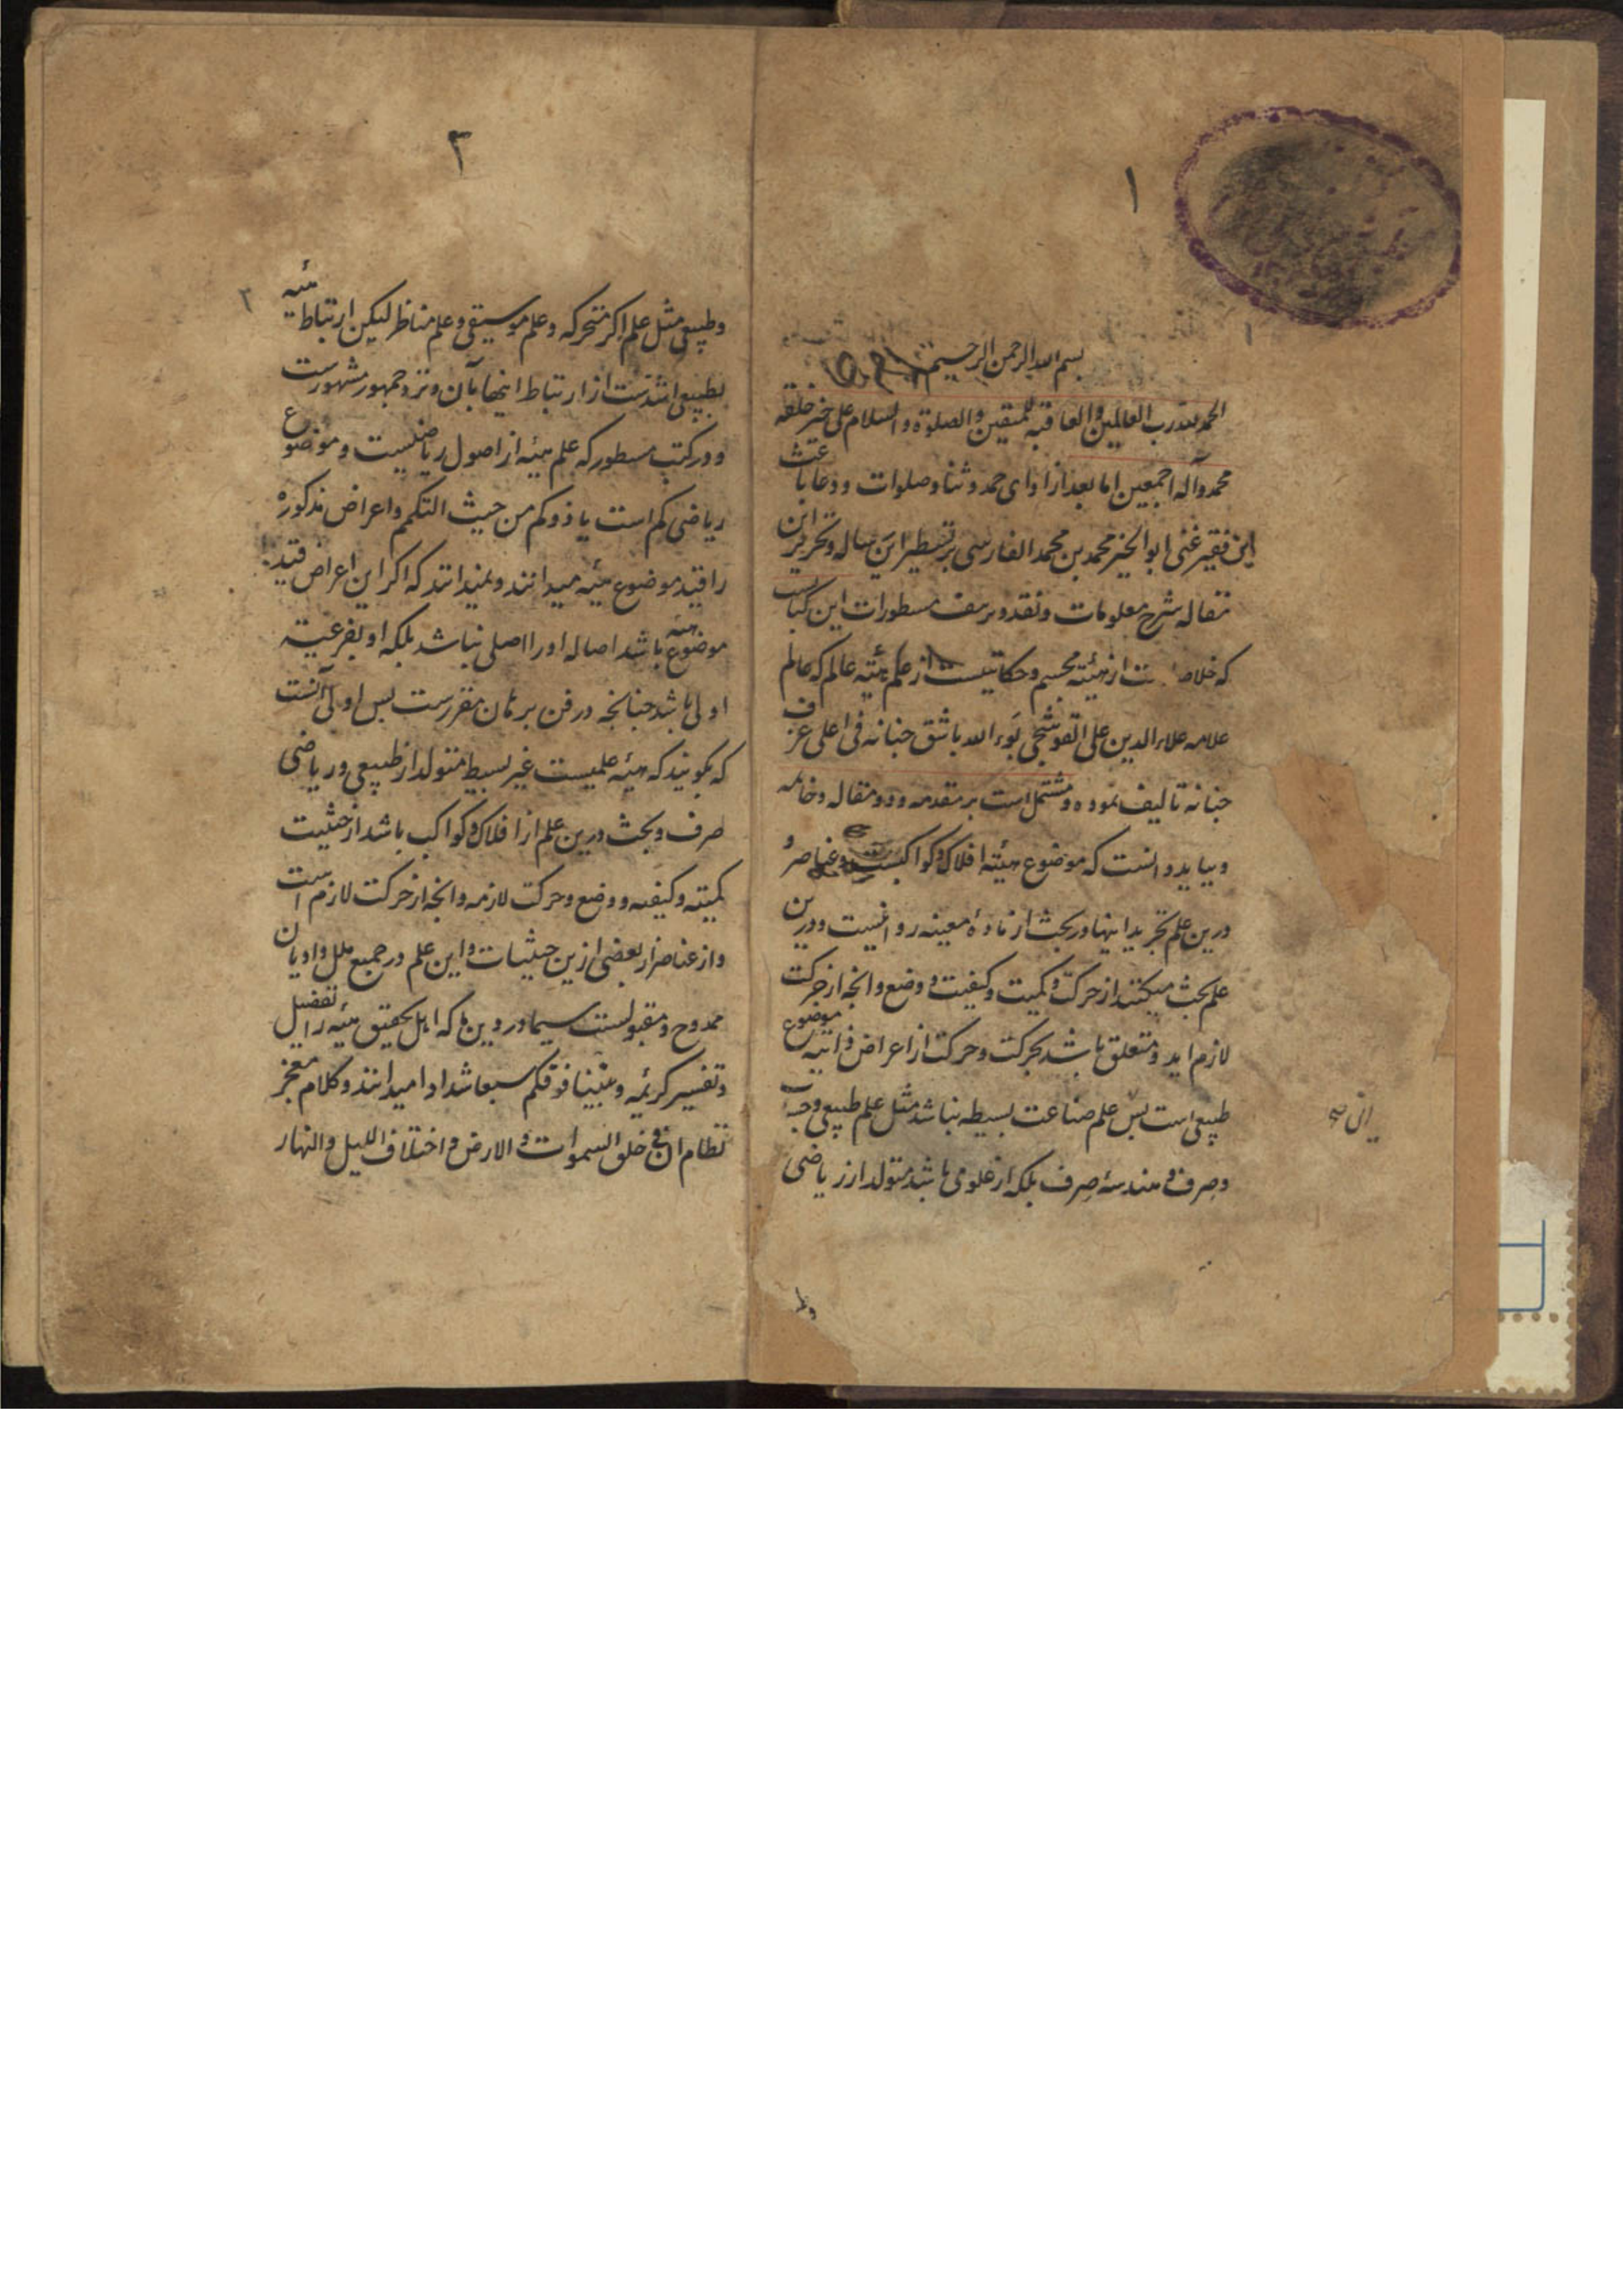 ۱
بسم الله الرحمن الرحیم
الحمد لله رب العالمین والعاقبة للمتقین والصلوة والسلام علی خیر خلقه
محمد وآله اجمعین اما بعد از ادای حمد و ثنا و صلوات و دعا باعث
این فقیر غنی ابو الخیر محمد بن محمد الفارسی بر تسطیر این رساله و تحریر این
مقاله شرح معلومات و نقد و برسف مسطورات این کتاب
که خلاصه ست از هیئه مجسم و حکایتیست از علم هیئه عالم که عالم
علامه علاء الدین علی القوشجی بوء الله باشق جنانه فی اعلی غرف
جنانه تالیف نموده و مشتمل است بر مقدمه و دو مقاله و خاتمه
و بباید دانست که موضوع هیئه افلاک و کواکبست و عناصر و
درین علم تجرید اینها و در بحث از ماده معینه روا نیست و درین
علم بحث میکنند از حرکت و کمیت و کیفیت و وضع و انجه از حرکت
لازم اید و متعلق باشد بحرکت و حرکت از اعراض ذاتیه موضوع
طبیعی است بس علم صناعت بسیطه نباشد مثل علم طبیعی وجب
وصرف و هندسهٔ صرف بلکه از علومی باشد متولد از ریاضی
وط
۳
۲
وطبیعی مثل علم اکر متحرکه و علم موسیقی و علم مناظر لیکن ارتباط هیئه
بطبیعی اشدست از ارتباط اینها بآن و نزد جمهور مشهورست
و در کتب مسطور که علم هیئه از اصول ریاضیست و موضوع
ریاضی کم است یا ذو کم من حیث التکمم و اعراض مذکوره
را قید موضوع هیئه میدانند و نمیدانند که اکر این اعراض قید
موضوع هیئه باشد اصاله او را اصلی نباشد بلکه او بفرعیة
اولی باشد جنانجه در فن برهان مقررست بس اولی آنست
که بکویند که هیئه علمیست غیر بسیط متولد از طبیعی و ریاضی
صرف و بحث درین علم از افلاک و کواکب باشد از حیثیت
کمیته و کیفیه و وضع و حرکت لازمه و انجه از حرکت لازم است
و از عناصر از بعضی ازین حیثیات و این علم در جمیع ملل و ادیان
ممدوح و مقبولست سیما در دین ما که اهل تحقیق هیئه را تفصیل
و تفسیر کریمه و بنینا فوقکم سبعا شدادا میدانند و کلام معجز
نظام ان فی خلق السموات والارض واختلاف اللیل والنهار